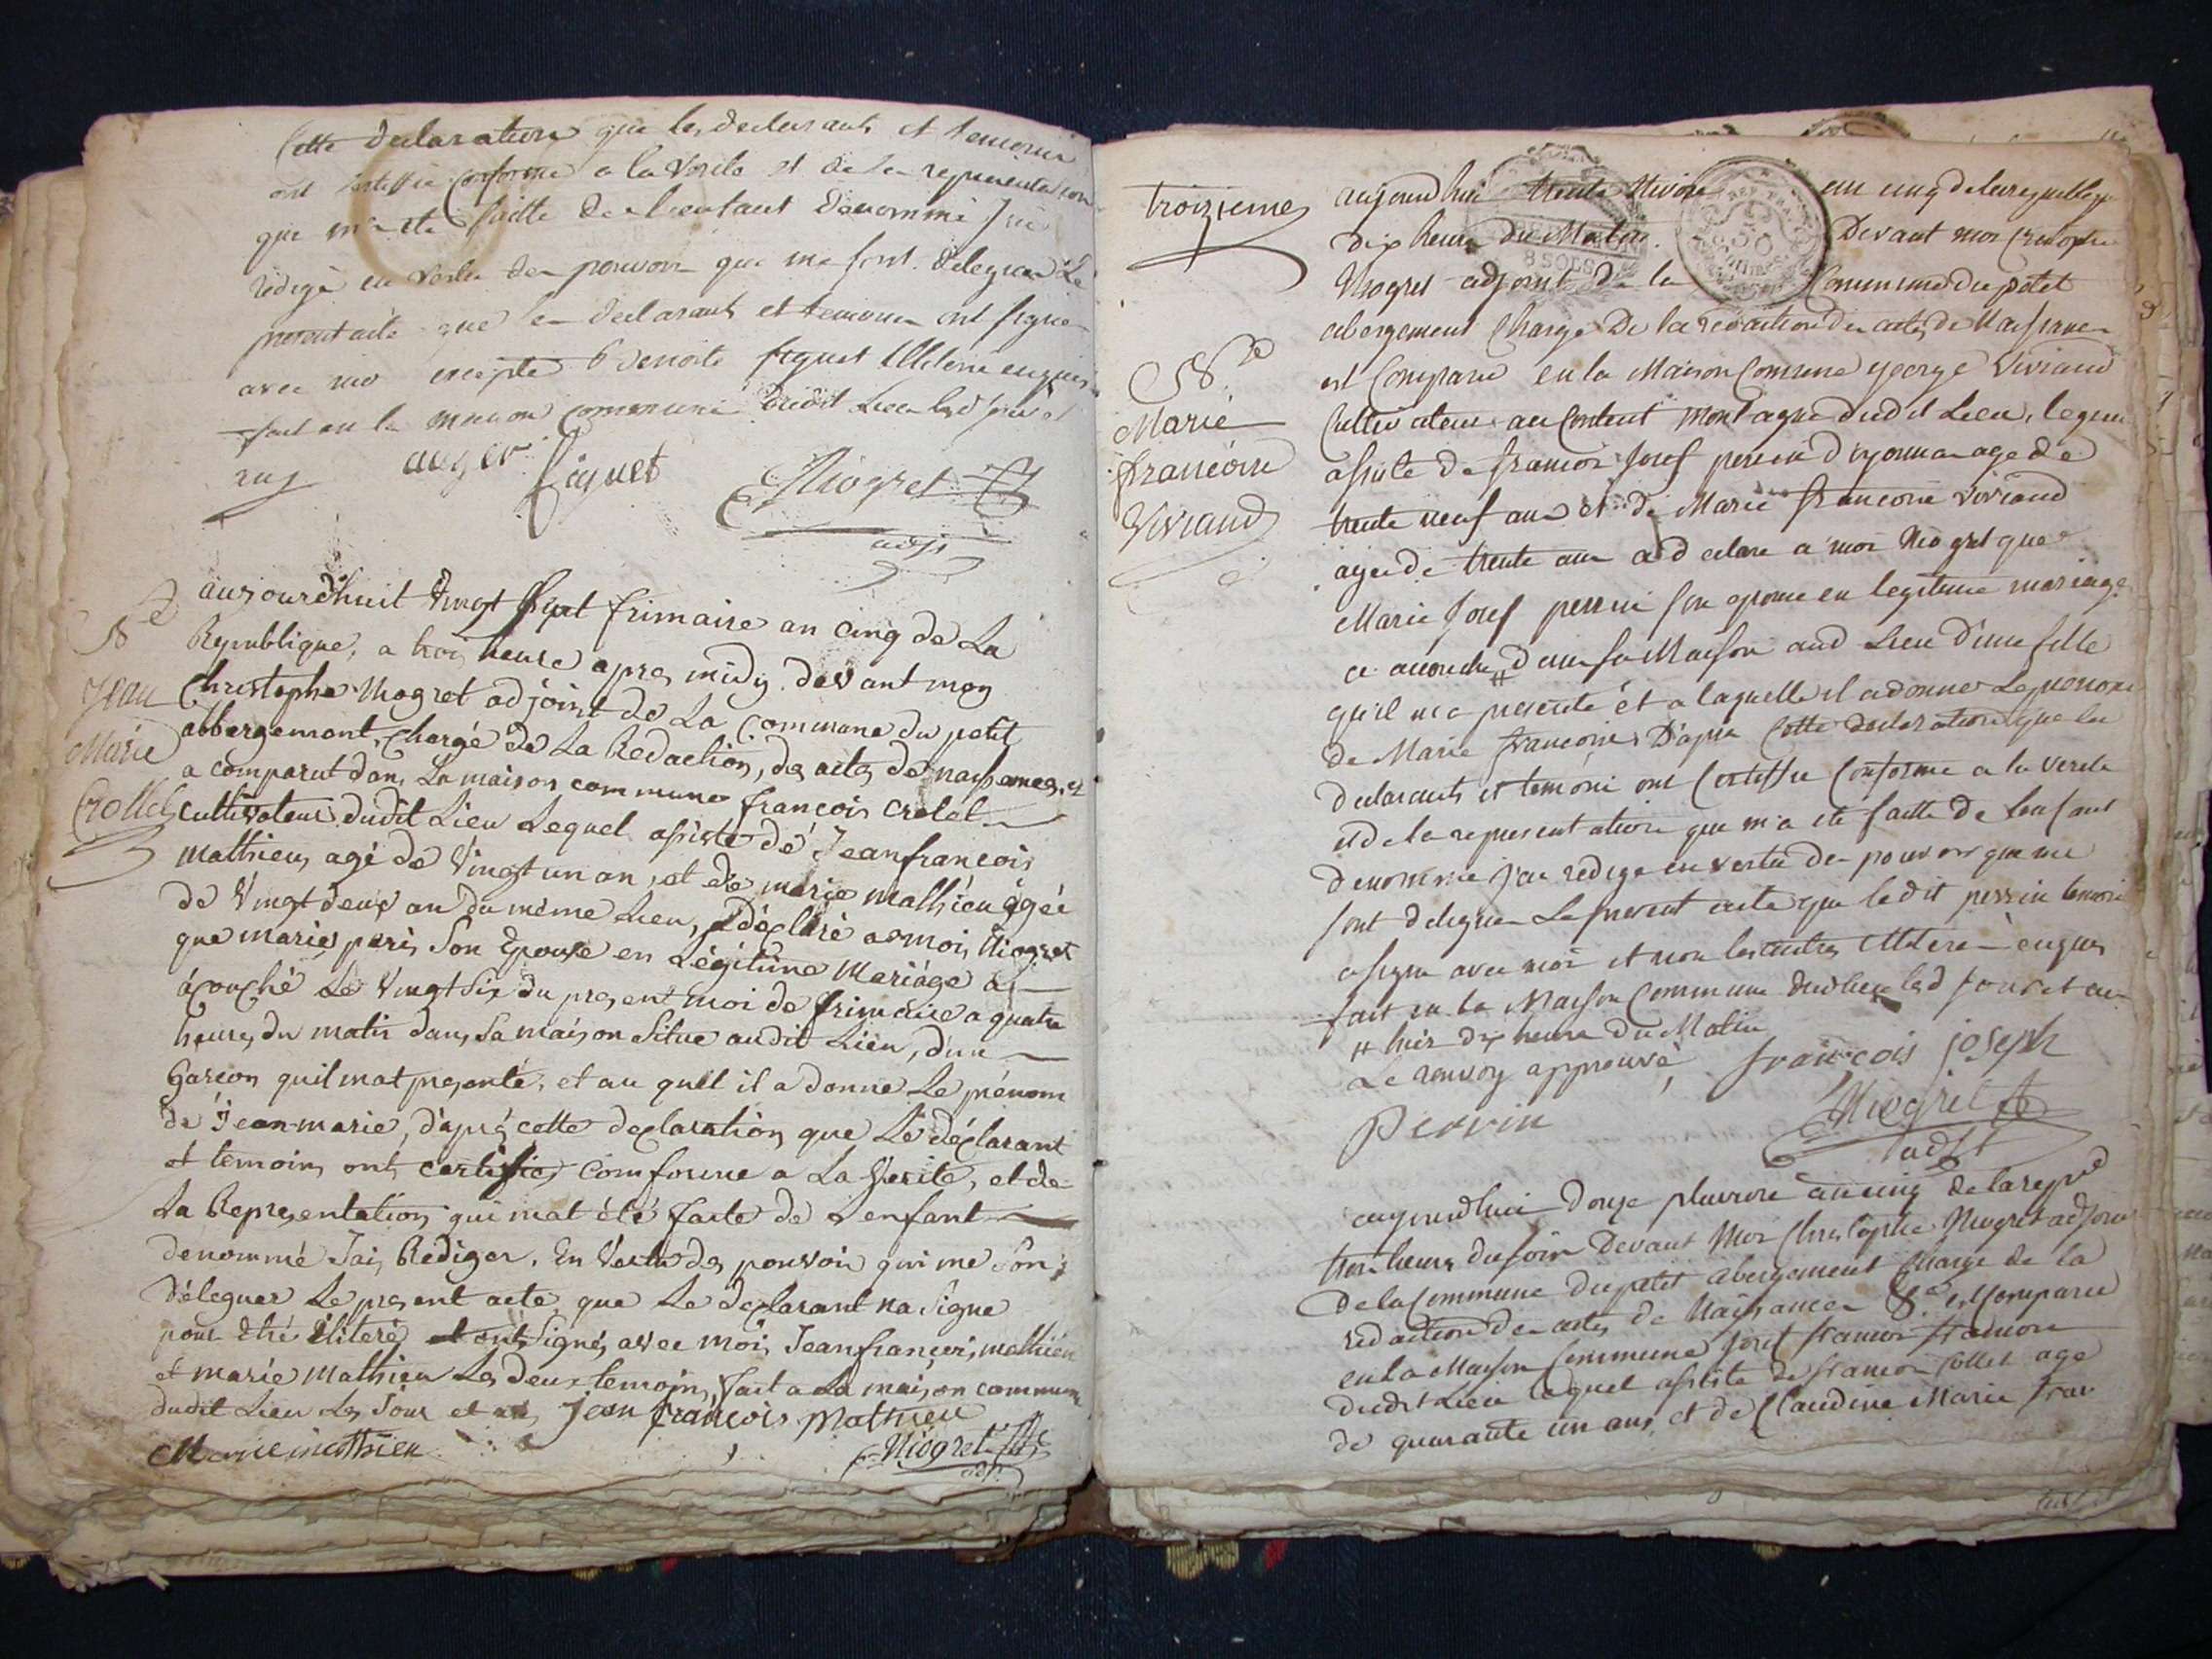 Cette declaration que les declarants et temoins
ont certiffie conforme a la verite et de la representation
que m'a ete faitte de l'enfant denommé j'ai
redigé en vertu des pouvoirs que me sont delegues le
present acte que les declarants et temoins ont signé
avec moi excepté Benoite figuet illiterée enquise
fait en la maison commune dudit Lieu lesd jour et
an
auger
figuet
Niogret
adjt
aujourdhuit vingt sept frimaire an cinq de La
Republique, a trois heure apres midy devant moy
Christophe Niogret adjoint de La Commune du petit
abbergement, Chargé de La Redaction, des actes de naissances,
a comparut dans La maison commune françois crolet
cultivateur dudit Lieu Lequel assisté de Jeanfrançois
Mathieu, agé de Vingt un an, et de marie mathieu agée
de Vingt deux an du même Lieu, a déclaré a moi, Niogret
que marie, Son Epouse en Légitime Mariage a
acouché Le Vingt Six du present moi de frimaire a quatre
heures du matin dans Sa maison Situe audit Lieu, d'un
Garçon quil mat presenté, et au quel il a donne Le prénom
de Jean-marie, d'apré cette declaration, que Le déclarant
et temoins ont certifie Comforme a La Verité, et de
La Representation qui mat été faite de Lenfant
denommé Jai, Rediger, En Vertu des pouvoir qui me Son
déleguer Le present acte que Le declarant na Signe
pour etré iliteré, et ont Signé, avec moi, Jeanfrançois, mathieu
et marie Mathieu Les deux temoins, fait a La maison commune
dudit Lieu Les Jour et an, Jean françois Mathieu
Marie mathieu
Niogret
adjt
Jean
Marie
Crollet
troizieme
Marie
françoise
Viviand
aujourdhui trente Nivose an cinq de la republique
dix heure du Matin. Devant moi
Niogret adjoint de la Commune du petit
abergement Chargé De la redaction des actes de Naissances
est Comparu en la Maison Commune george Viviand
Cultivateur au Montagne dudit Lieu, lequel
assisté de françois Josef perrin agé de
trente neuf ans et de Marie françoise viviand
agée de trente ans a declaré a moi Niogret que
Marie Josef perrin son epouse en legitime mariage
a accouché # dans sa Maison aud Lieu d'une fille
qu'il m'a presenté et a laquelle il a donner Le prenom
de Marie francoise D'apres Cette declaration que les
declarants et temoins ont Certiffie Conforme a la verité
et de la representation que m'a eté faitte de l'enfant
denommé j'ai redigé en vertu des pouvoirs que me
sont delegues Le present acte que ledit perrin temoin
a signé avec moi et non les autres illiteré enquis
fait en la Maison Commune dudit lieu lesd jour et an
# hier dix heure du Matin
Le renvoy approuvé
françois joseph
Perrin
Niogret
adjt
aujourdhui douze pluviose an cinq de la repue
trois heure du soir Devant Moi Christophe Niogret adjoint
De la Commune du petit abergement Chargé de la
redaction des actes de Naissances est Comparu
en la Maison Commune Josef francois
dudit Lieu Lequel assisté de françois Collet agé
de quarante un ans, et de Claudine Marie
REP. FRA.
50
8 SOLS